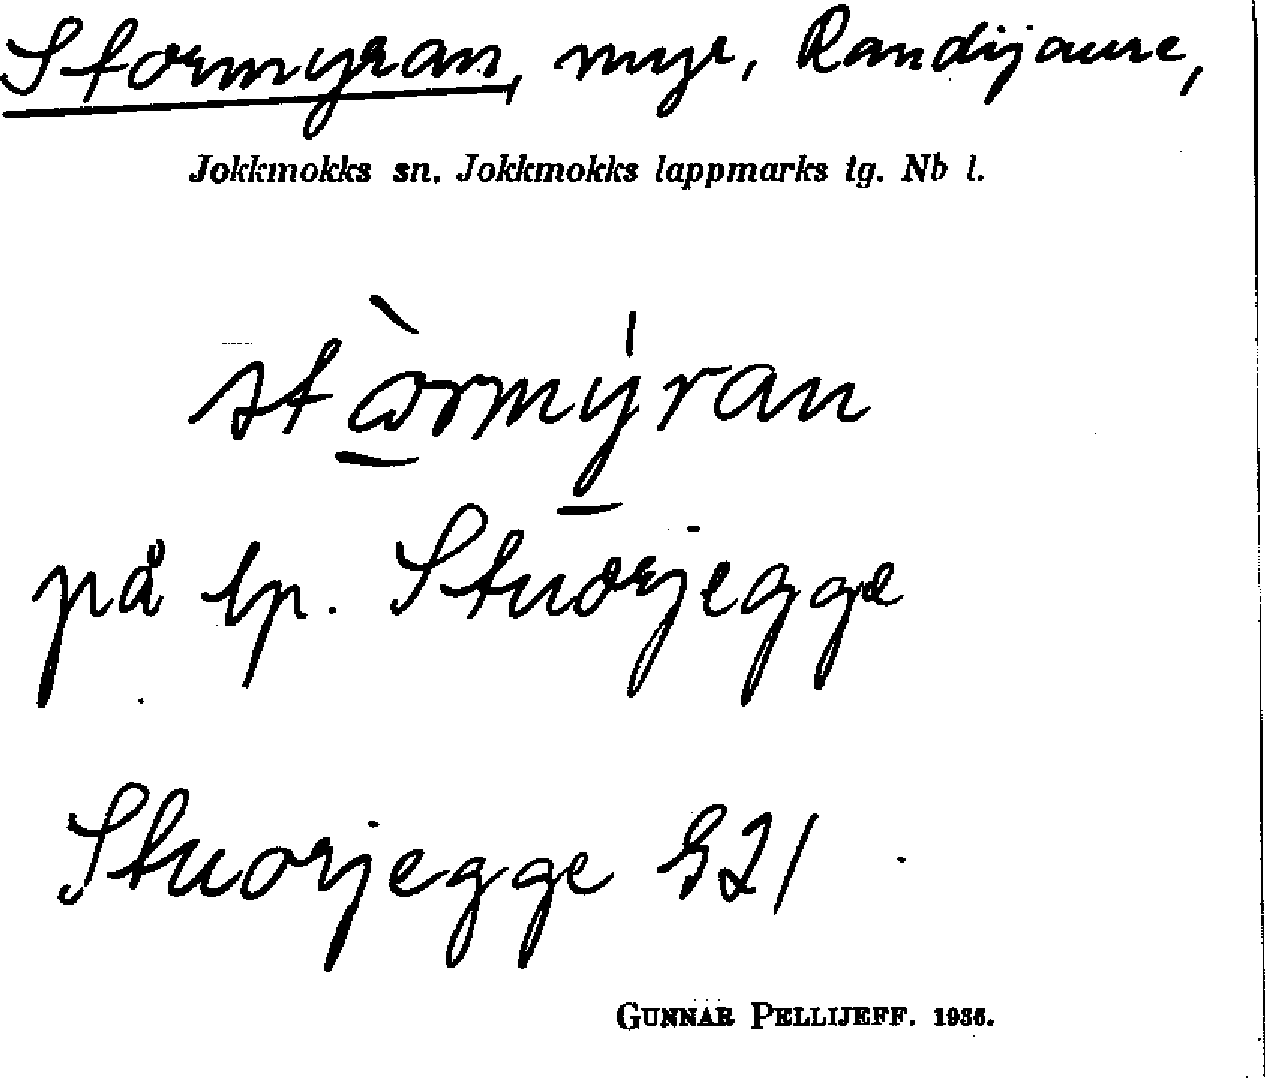 Stormyran, myr, Randijaure,
Jokkmokks sn. Jokkmokks lappmarks tg. Nb l.
stòrmýran
på lp. Stuorjegge
Stuorjegge S21
GUNNAR PELLIJEFF. 1936.